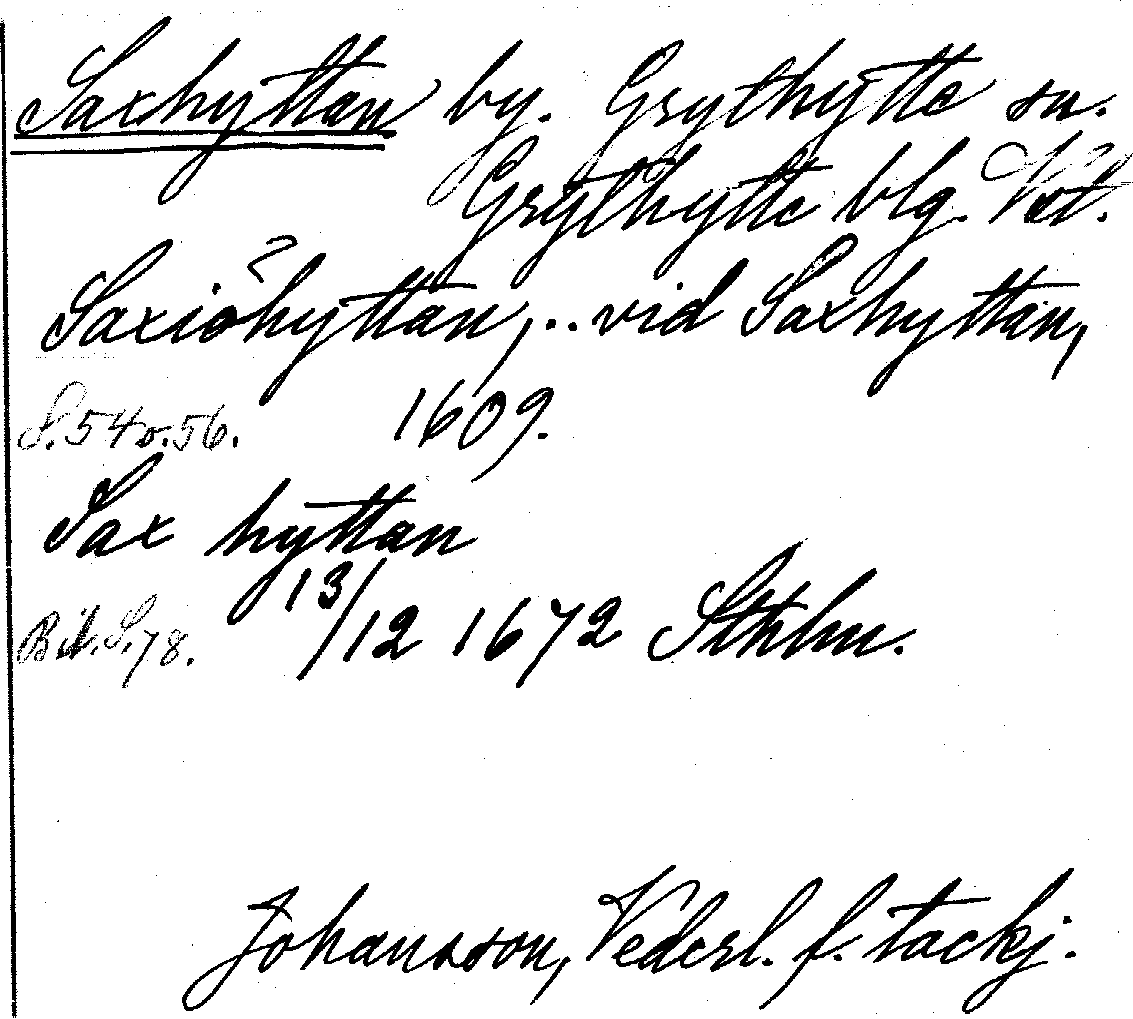 Saxhyttan by. Grythytte sn.
Grythytte blg. Vstl.
Saxiöhyttan,.. vid Saxhyttan,
S. 54 o. 56. 1609.
Sax hyttan
Bil. S. 78. 13/12 1672 Sthlm.
Johansson, Vederl. f. tackj.